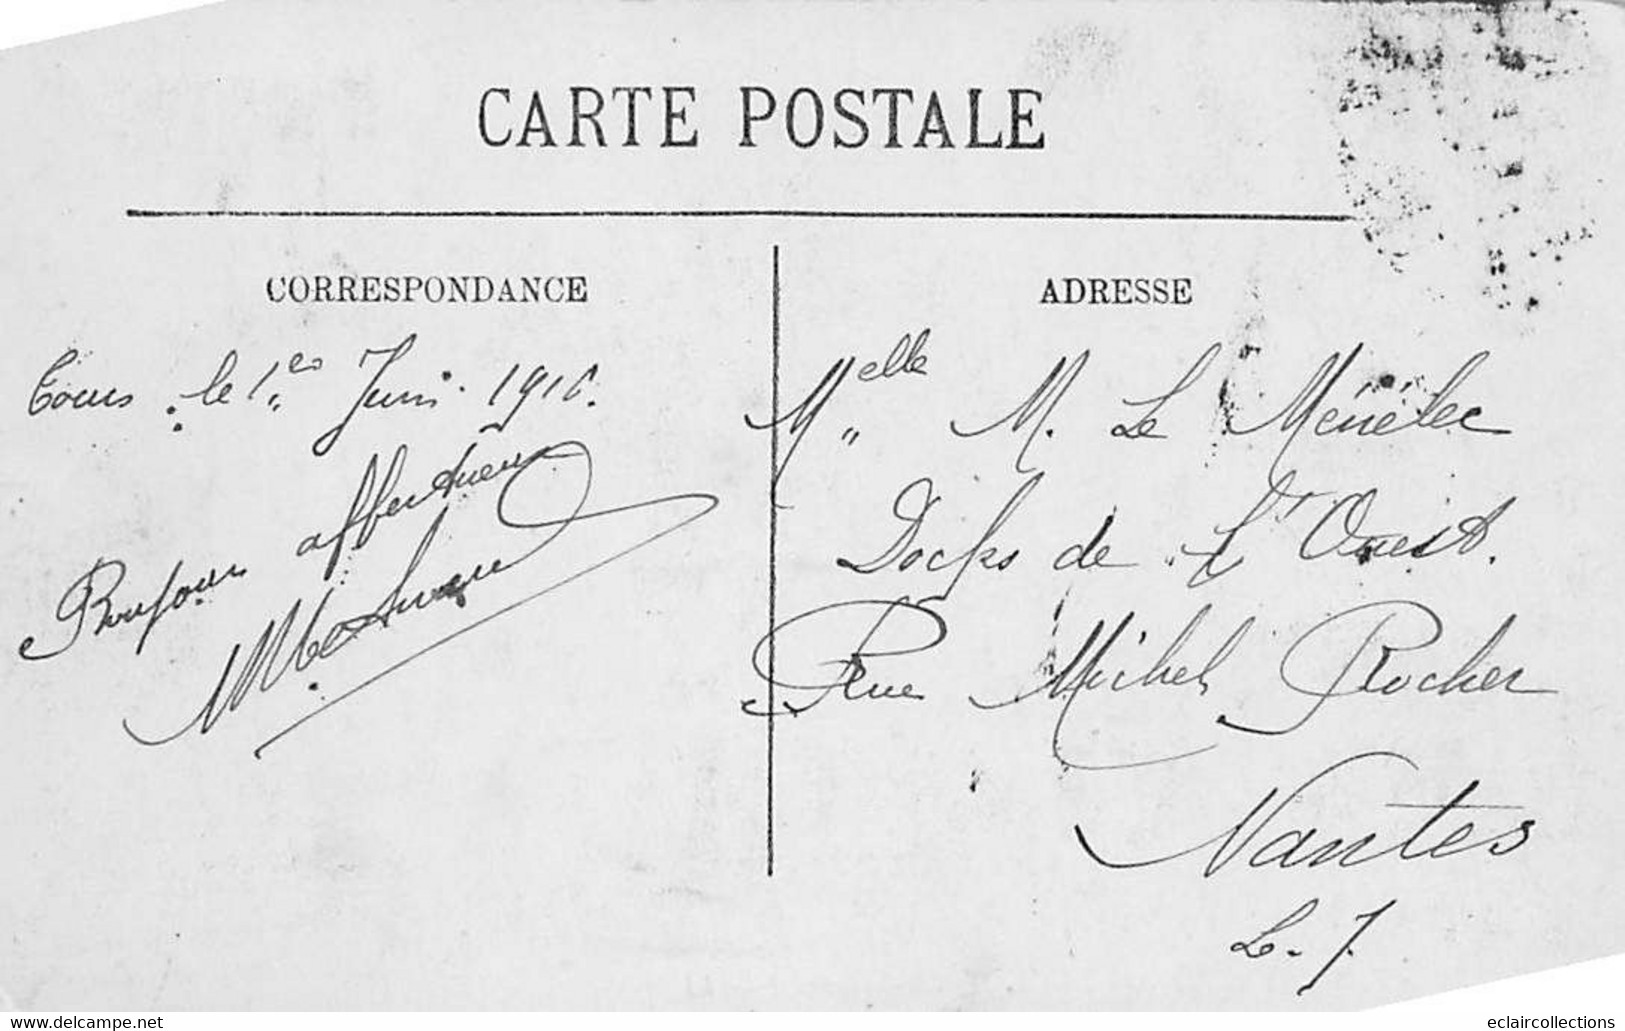 CARTE POSTALE
CORRESPONDANCE
Tours le 1er Juin 191
Bonjour affectueux
ADRESSE
Melle M. Le Ménélec
Docks de L'Ouest.
Rue Michel Rocher
Nantes
L. I.
delcampe.net
eclaircollections